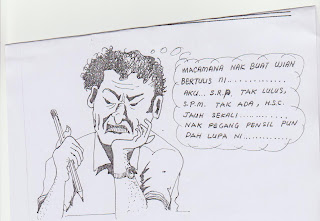 MACAMANA NAK BUAT UJIAN
BERTULIS NI..............
AKU... S.R.P, TAK LULUS,
S.P.M. TAK ADA, H.S.C.
JAUH SEKALI............
NAK PEGANG PENSIL PUN
DAH LUPA NI............